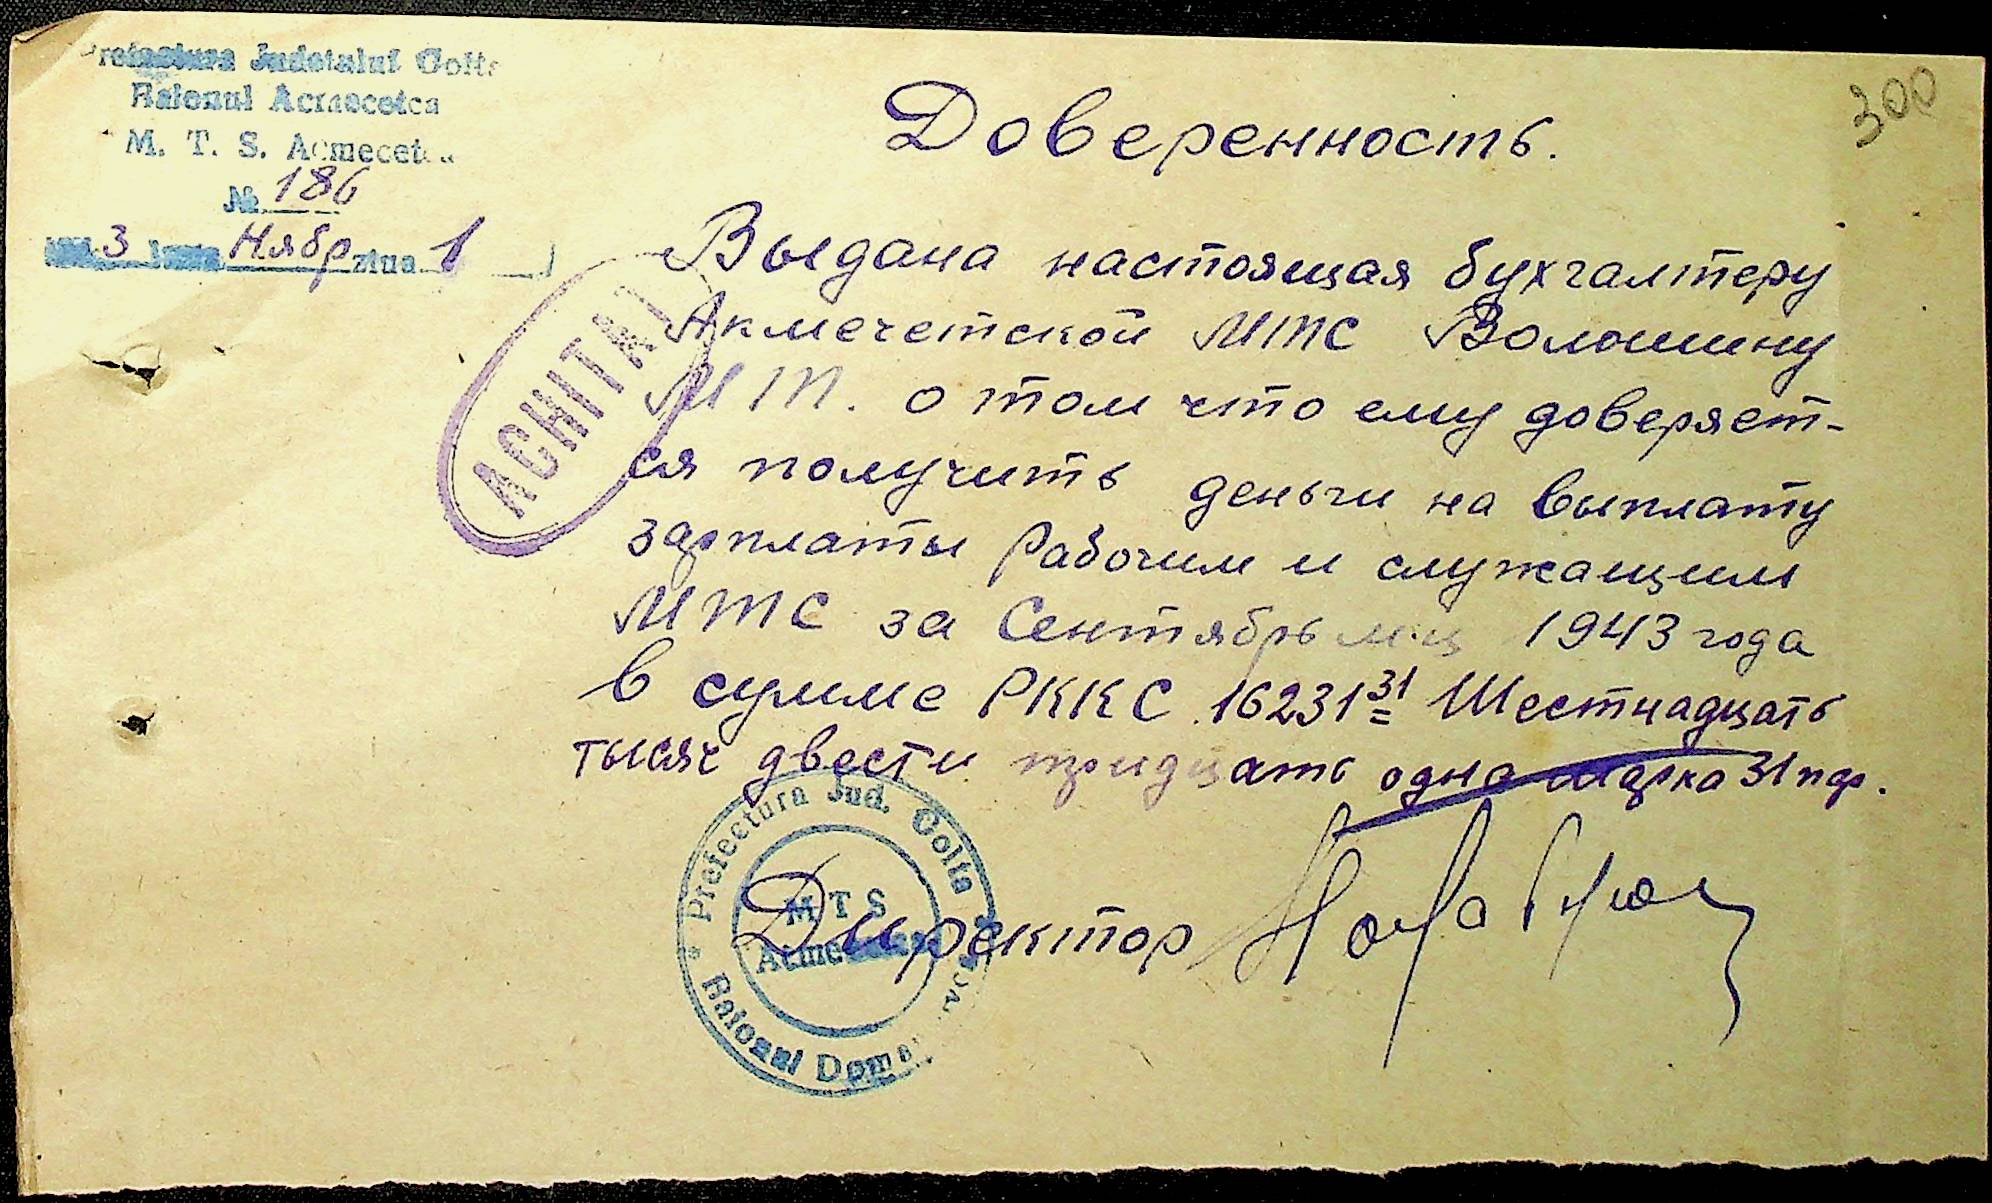 Prefectura Judetului Golta
Raionul Acmecetca
M. T. S. Acmecetca
№ 186
3 Ноябр ziua 1
300
Доверенность.
ACHITAT
Выдана настоящая бухгалтеру
Акмечетской МТС Волошину
М Т. о том что ему доверяет-
ся получить деньги на выплату
зарплаты Рабочим и служащим
МТС за Сентябрь м-ц 1943 года
в сумме РККС 16231 31 Шестнадцать
тысяч двести тридцать одна марка 31 пф.
Prefectura Jud. Golta
M T S
Raionul
Директор